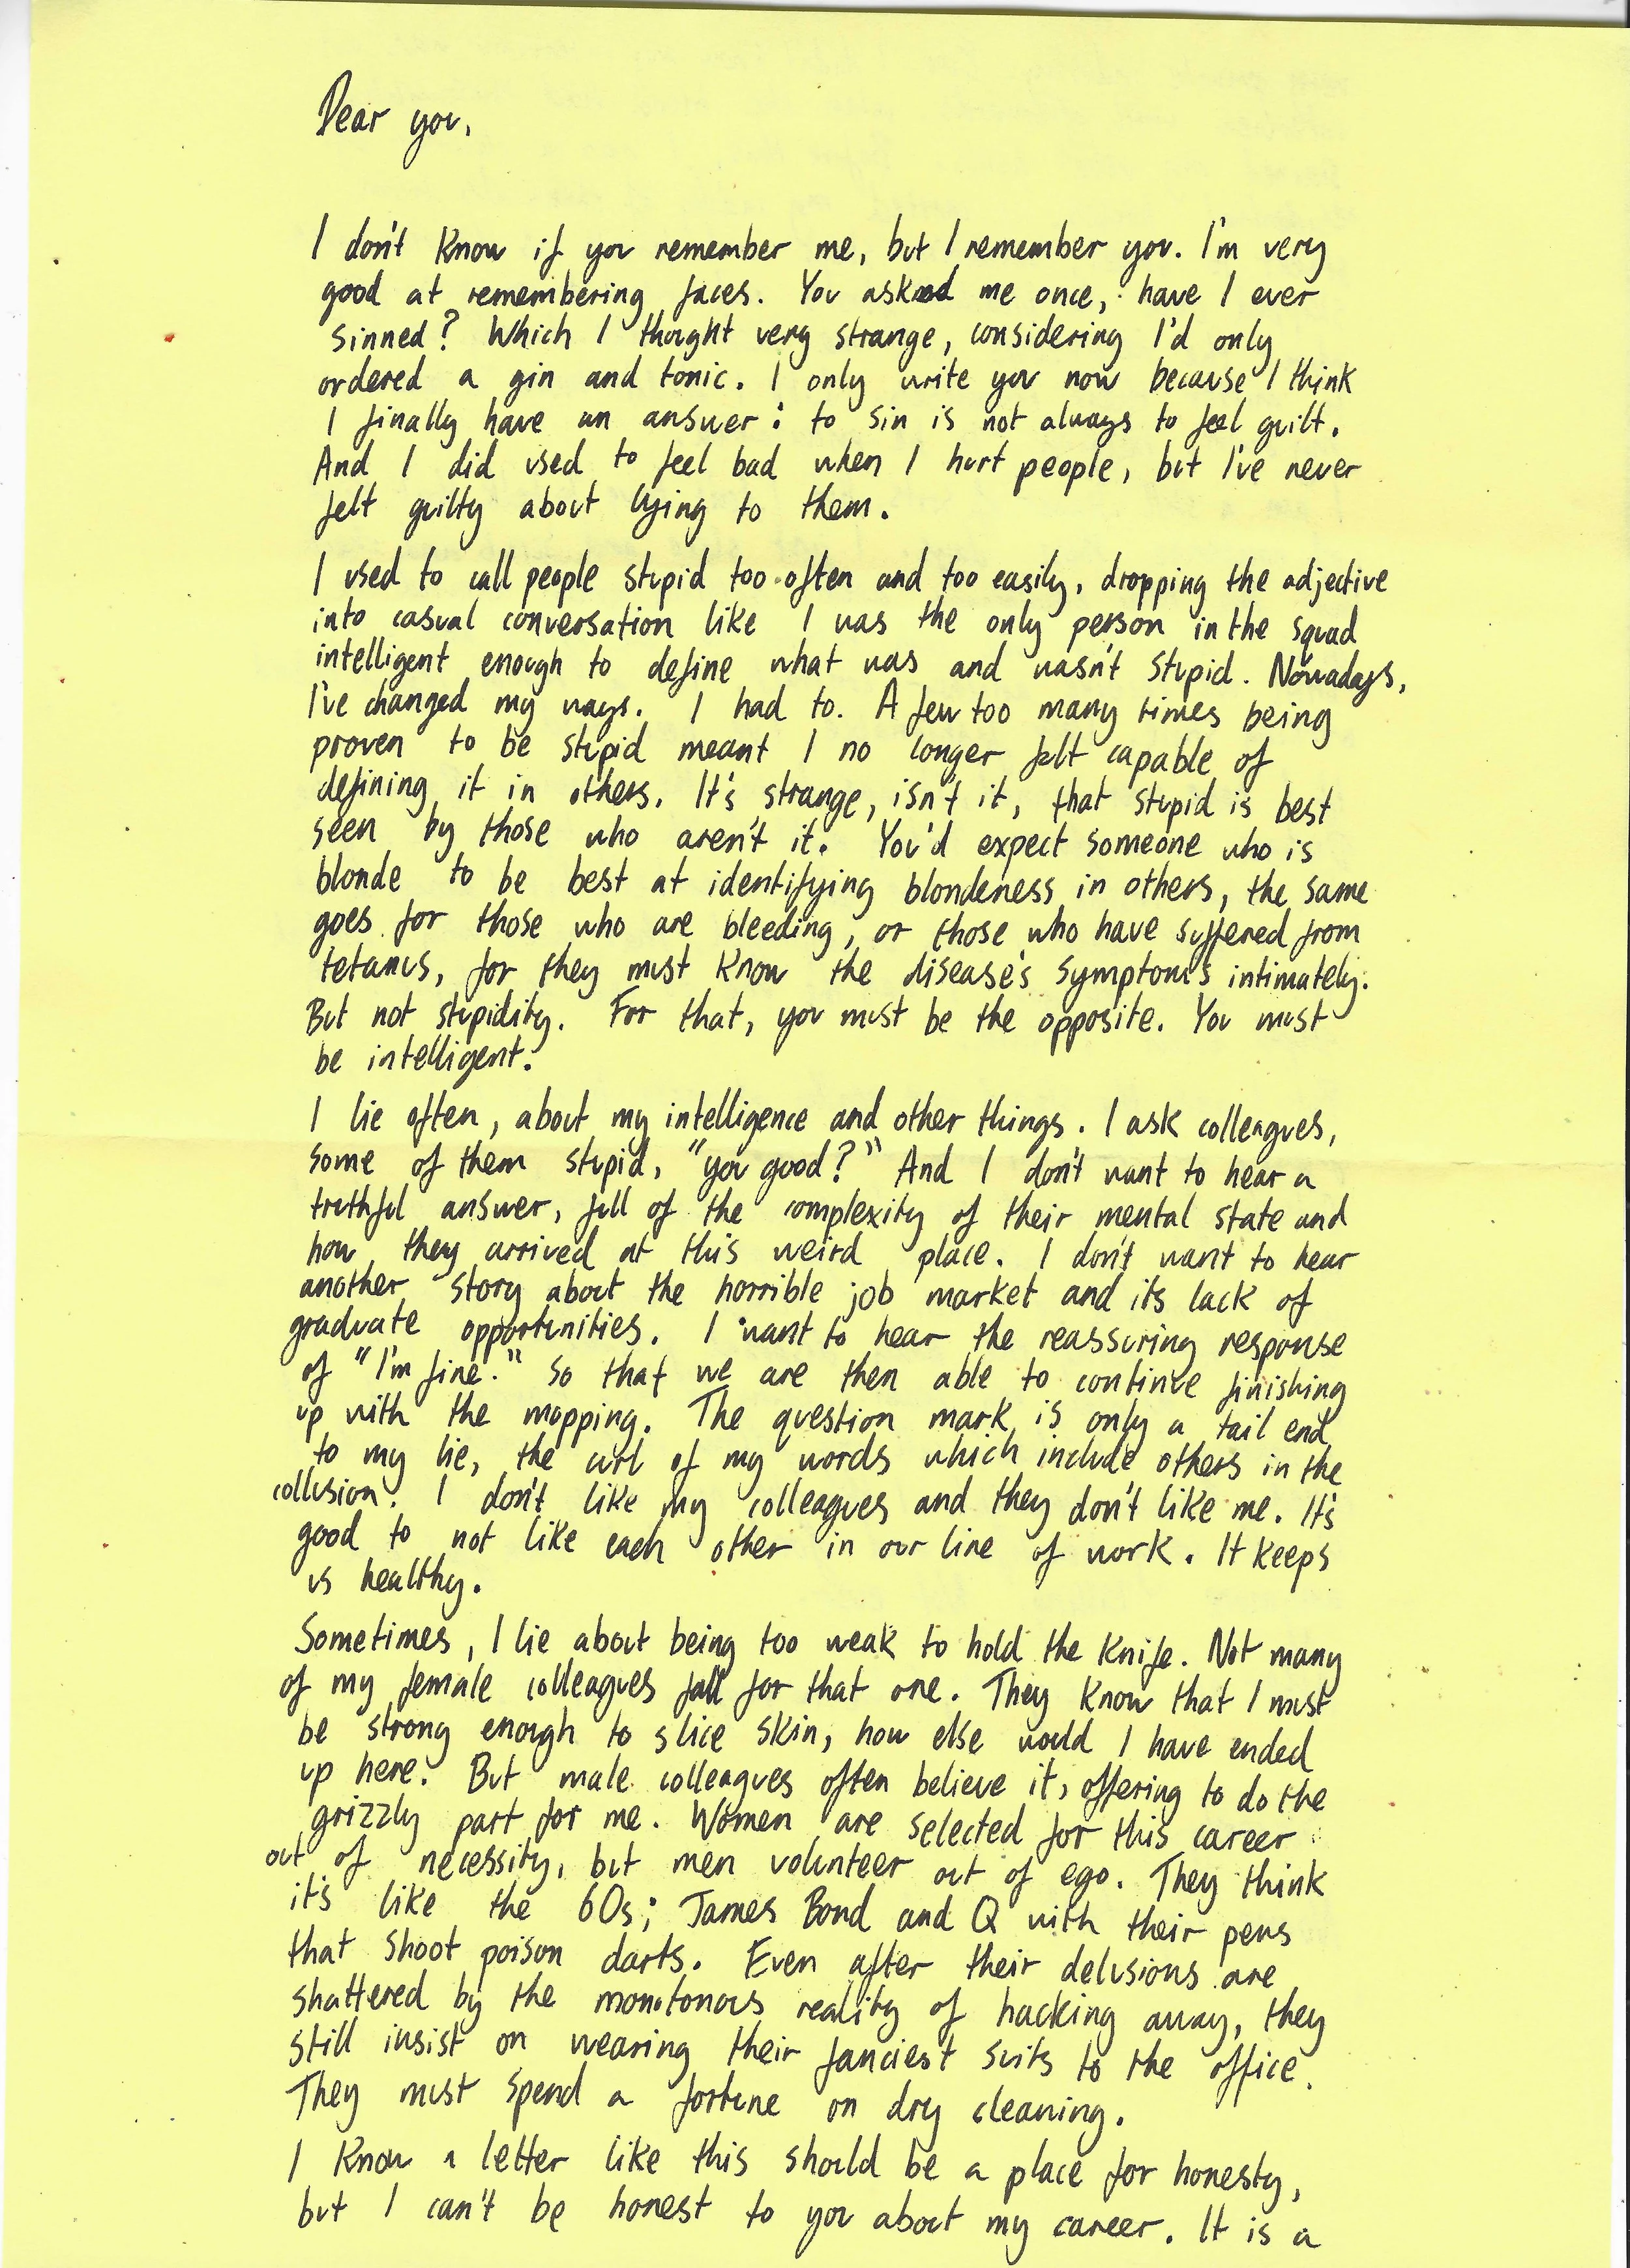 Dear you,
I don't know if you remember me, but I remember you. I'm very
good at remembering faces. You asked me once, have I ever
sinned? Which I thought very strange, considering I'd only
ordered a gin and tonic. I only write you now because I think
I finally have an answer: to sin is not always to feel guilt.
And I did used to feel bad when I hurt people, but I've never
felt guilty about lying to them.
I used to call people stupid too often and too easily, dropping the adjective
into casual conversation like I was the only person in the squad
intelligent enough to define what was and wasn't stupid. Nowadays,
I've changed my ways. I had to. A few too many times being
proven to be stupid meant I no longer felt capable of
defining it in others. It's strange, isn't it, that stupid is best
seen by those who aren't it. You'd expect someone who is
blonde to be best at identifying blondeness in others, the same
goes for those who are bleeding, or those who have suffered from
tetanus, for they must know the disease's symptoms intimately.
But not stupidity. For that, you must be the opposite. You must
be intelligent.
I lie often, about my intelligence and other things. I ask colleagues,
some of them stupid, "you good?" And I don't want to hear a
truthful answer, full of the complexity of their mental state and
how they arrived at this weird place. I don't want to hear
another story about the horrible job market and its lack of
graduate opportunities. I want to hear the reassuring response
of "I'm fine." So that we are then able to continue finishing
up with the mopping. The question mark is only a tail end
to my lie, the curl of my words which include others in the
collusion. I don't like my colleagues and they don't like me. It's
good to not like each other in our line of work. It keeps
us healthy.
Sometimes, I lie about being too weak to hold the knife. Not many
of my female colleagues fall for that one. They know that I must
be strong enough to slice skin, how else would I have ended
up here. But male colleagues often believe it, offering to do the
grizzly part for me. Women are selected for this career
out of necessity, but men volunteer out of ego. They think
it's like the 60s; James Bond and Q with their pens
that shoot poison darts. Even after their delusions are
shattered by the monotonous reality of hacking away, they
still insist on wearing their fanciest suits to the office.
They must spend a fortune on dry cleaning.
I know a letter like this should be a place for honesty,
but I can't be honest to you about my career. It is a